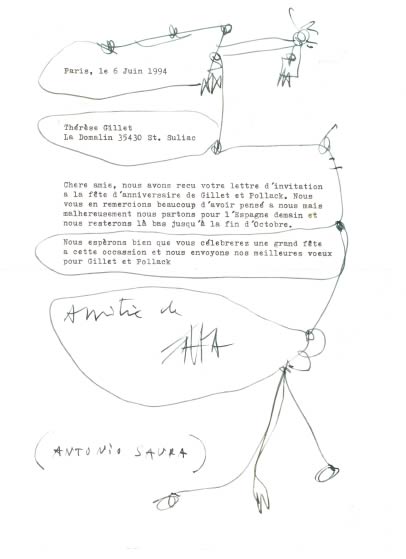 Paris, le 6 Juin 1994
Thérèse Gillet
La Domalin 35430 St. Suliac
Chere amie, nous avons recu votre lettre d'invitation
a la fête d'anniversaire de Gillet et Pollack. Nous
vous en remercions beaucoup d'avoir pensé a nous mais
malhereusement nous partons pour l'Espagne demain et
nous resterons là bas jusqu'à la fin d'Octobre.
Nous espèrons bien que vous célebrerez une grand fête
a cette occassion et nous envoyons nos meilleures voeux
pour Gillet et Pollack
Amitié de
SAURA
(ANTONIO SAURA)